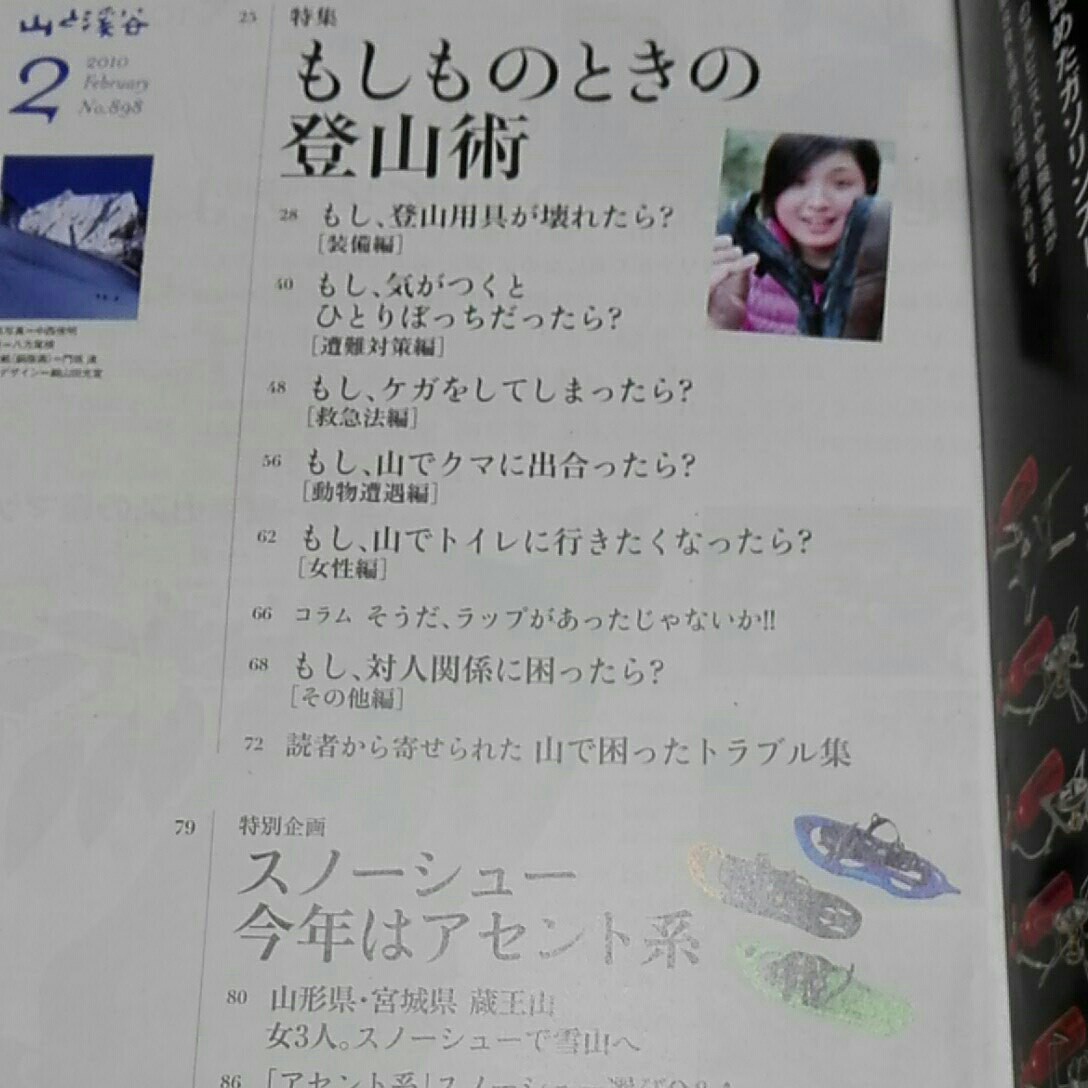 山と溪谷
2
2010
February
No.898
25 特集
もしものときの
登山術
28 もし、登山用具が壊れたら?
[装備編]
40 もし、気がつくと
ひとりぼっちだったら?
[遭難対策編]
48 もし、ケガをしてしまったら?
[救急法編]
56 もし、山でクマに出合ったら?
[動物遭遇編]
62 もし、山でトイレに行きたくなったら?
[女性編]
66 コラム そうだ、ラップがあったじゃないか!!
68 もし、対人関係に困ったら?
[その他編]
72 読者から寄せられた 山で困ったトラブル集
79 特別企画
スノーシュー
今年はアセント系
80 山形県・宮城県 蔵王山
女3人。スノーシューで雪山へ
86 「アセント系」スノーシュー選び